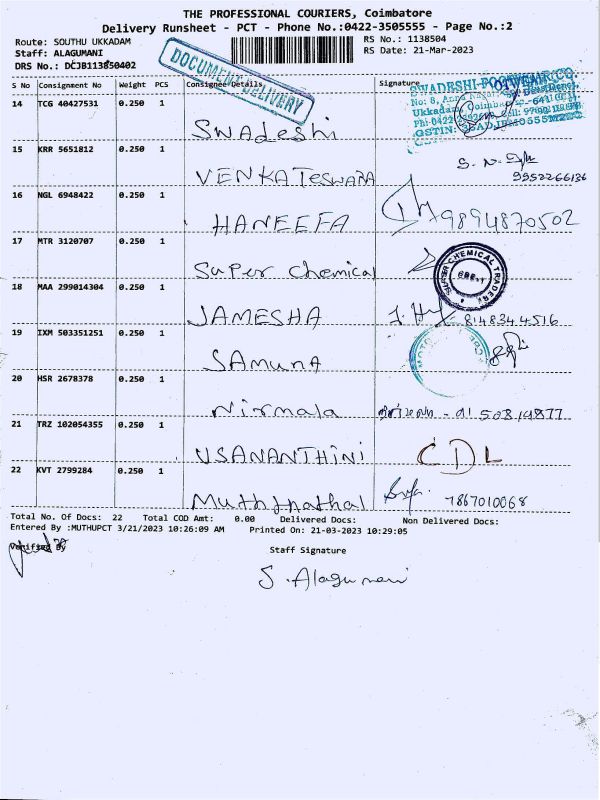 THE PROFESSIONAL COURIERS, Coimbatore
Delivery Runsheet - PCT - Phone No.:0422-3505555 - Page No.:2
Route: SOUTHU UKKADAM
RS No.: 1138504
Staff: ALAGUMANI
RS Date: 21-Mar-2023
DRS No.: DCJB113850402
DOCUMENT DELIVERY
S No Consignment No Weight PCS Consignee Details Signature
14 TCG 40427531 0.250 1
SWADESHI
No: 8,
Swadeshi
15 KRR 5651812 0.250 1
VENKATESWARA 9952266136
16 NGL 6948422 0.250 1
HANEEFA 9894870502
17 MTR 3120707 0.250 1
Super Chemical
SUPER CHEMICAL TRADERS
18 MAA 299014304 0.250 1
JAMESHA 8148344516
19 IXM 503351251 0.250 1
SAMUNA
20 HSR 2678378 0.250 1
Nirmala
21 TRZ 102054355 0.250 1
USANANTHINI CDL
22 KVT 2799284 0.250 1
Muththathal 7867010068
Total No. Of Docs: 22 Total COD Amt: 0.00 Delivered Docs: Non Delivered Docs:
Entered By :MUTHUPCT 3/21/2023 10:26:09 AM Printed On: 21-03-2023 10:29:05
Verified By
Staff Signature
S. Alagumani